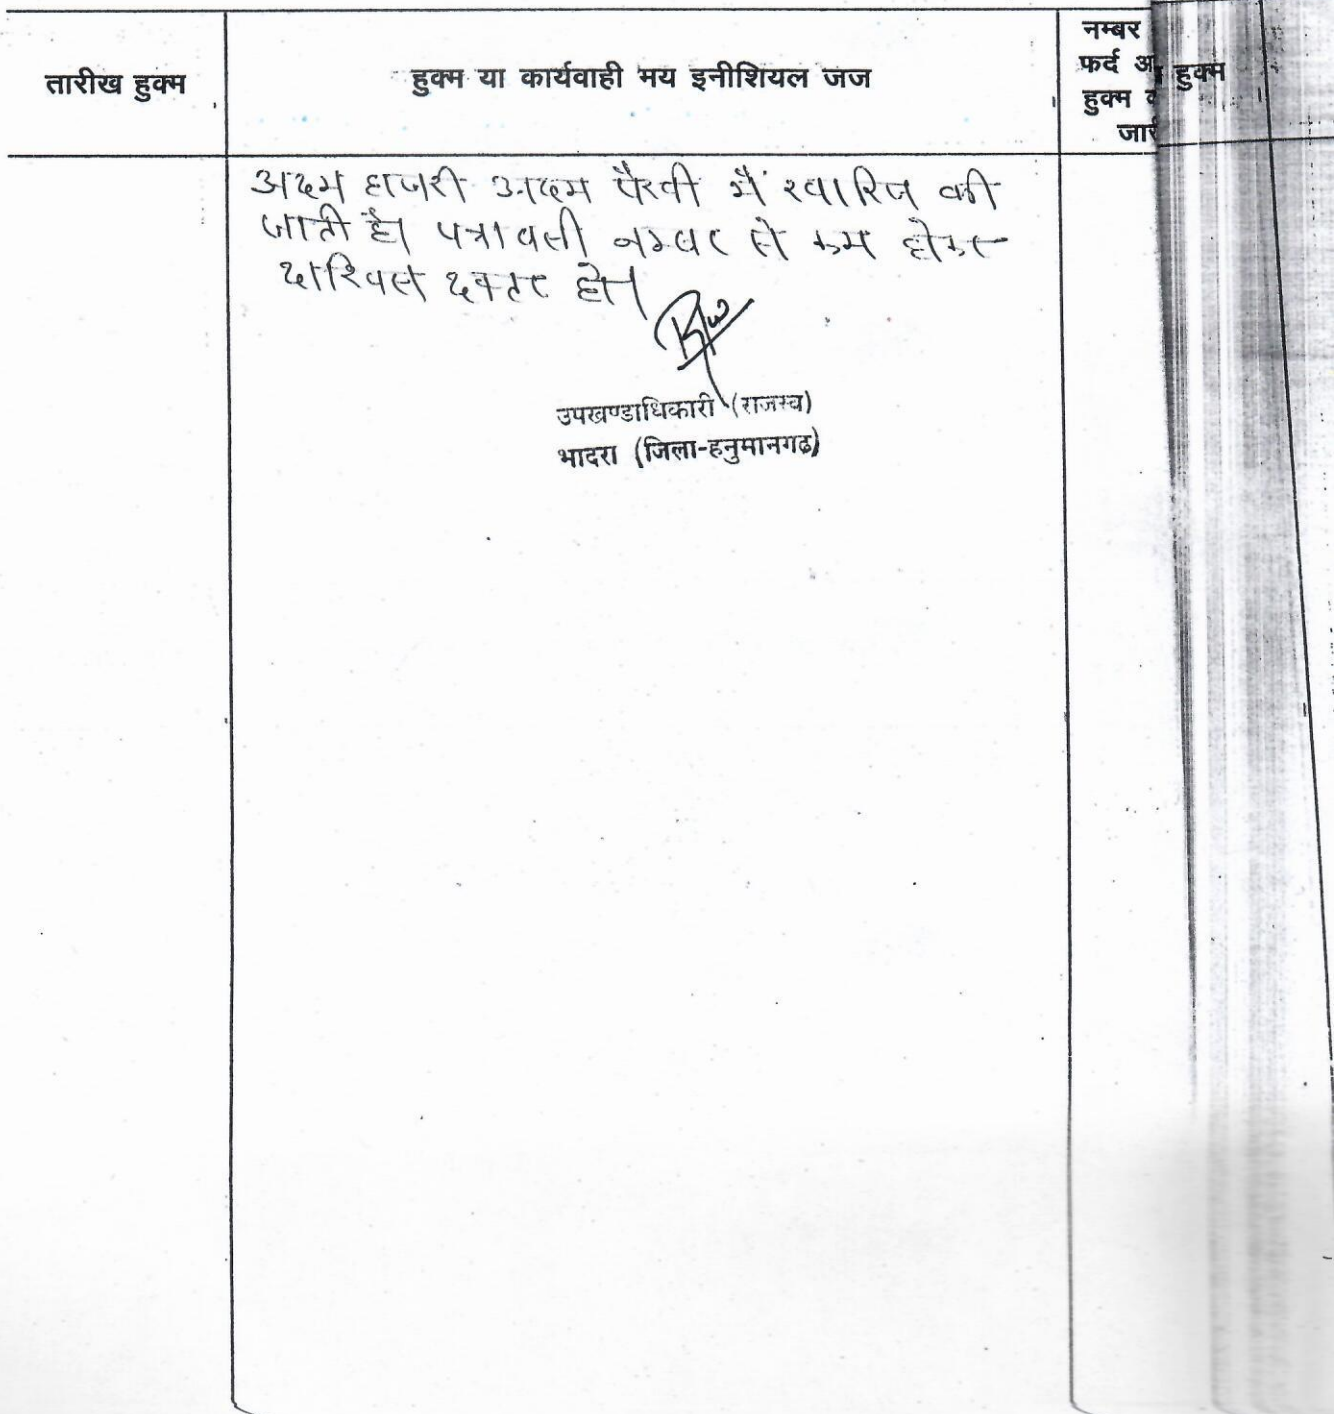 तारीख हुक्म
हुक्म या कार्यवाही मय इनीशियल जज
नम्बर
फर्द अ
हुक्म
जारी
हुक्म
अदम हाजरी अदम पैरवी में खारिज की
जाती है। पत्रावली नम्बर से कम होकर
दाखिल दफ्तर हो।
उपखण्डाधिकारी (राजस्व)
भादरा (जिला-हनुमानगढ)